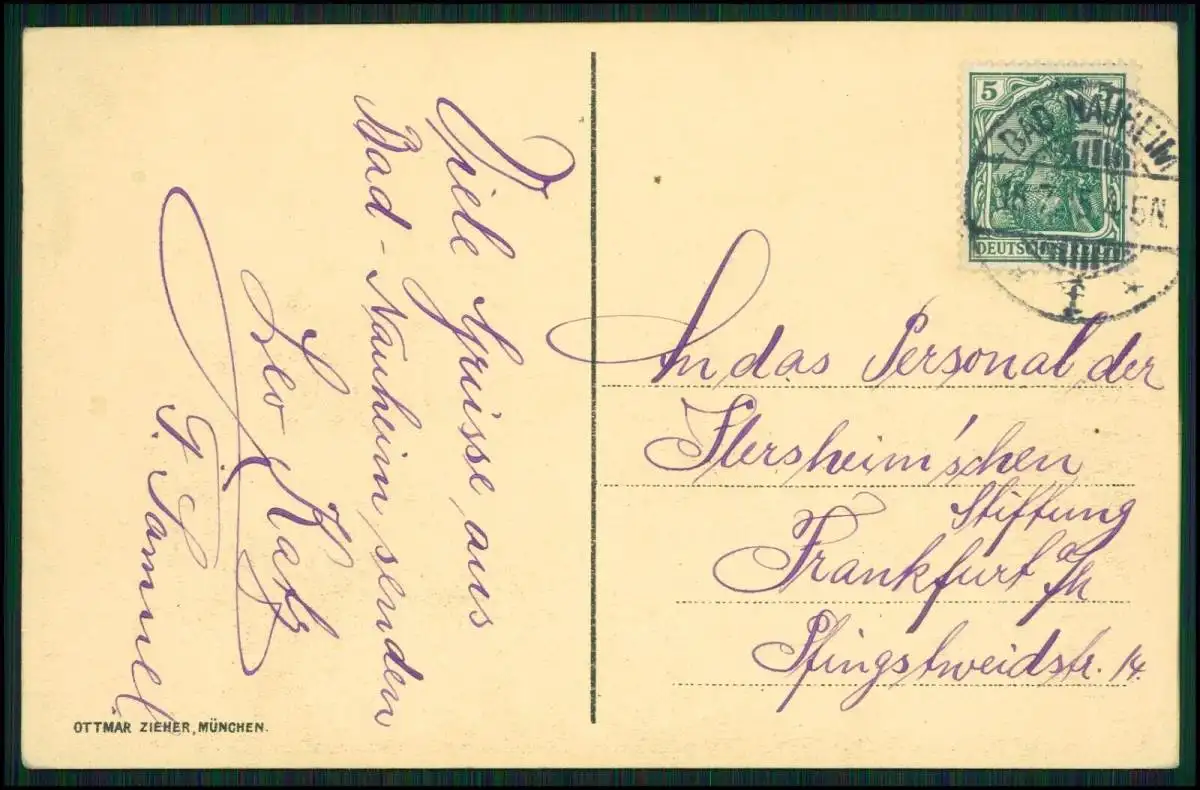 Viele Grüsse aus
Bad-Nauheim senden
Leo Katz
F. Samuel.
OTTMAR ZIEHER, MÜNCHEN.
5
DEUTSCHES REICH
BAD NAUHEIM
4-5N.
An das Personal der
Flersheim'schen
Stiftung
Frankfurt a/M
Pfingstweidstr. 14.